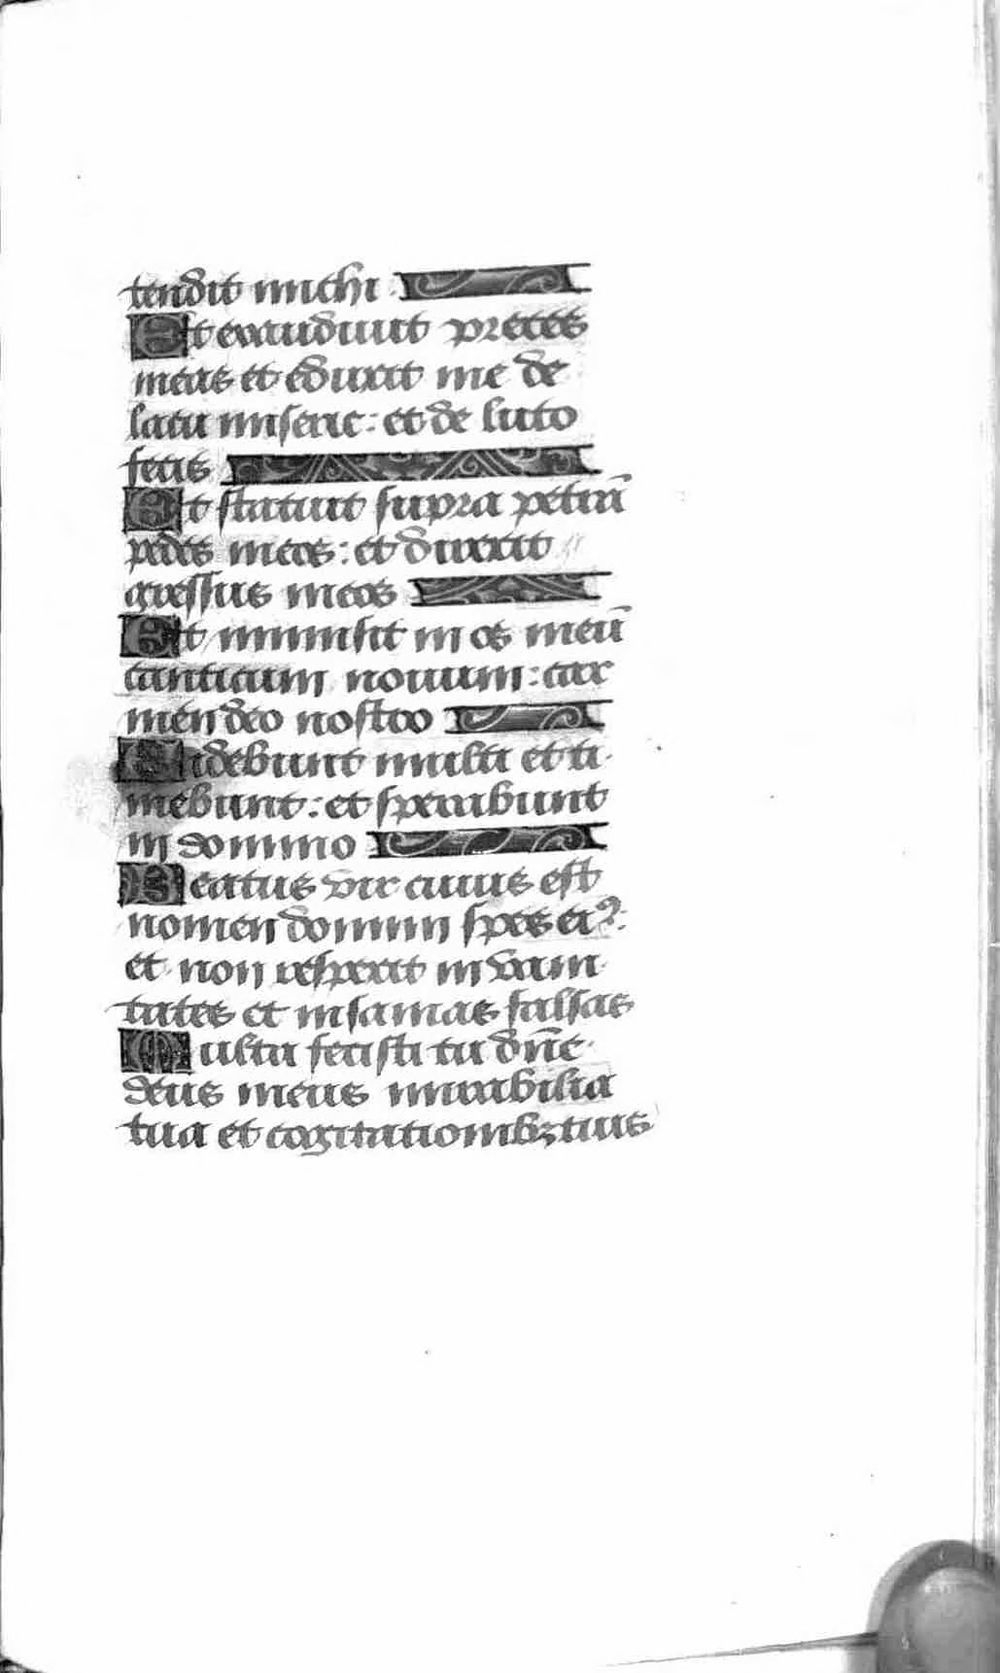 tendit michi
Et exaudiuit preces
meas et eduxit me de
lacu miserie: et de luto
fecis
Et statuit supra petrā
pedes meos: et direxit
gressus meos
Et immisit in os meū
canticum nouum: car
men deo nostro
Uidebunt multi et ti
mebunt: et sperabunt
in domino
Beatus vir cuius est
nomen domini spes eiꝰ:
et non respexit in vani
tates et insanias falsas
Multa fecisti tu dn̄e
deus meus mirabilia
tua et cogitationibꝫ tuis